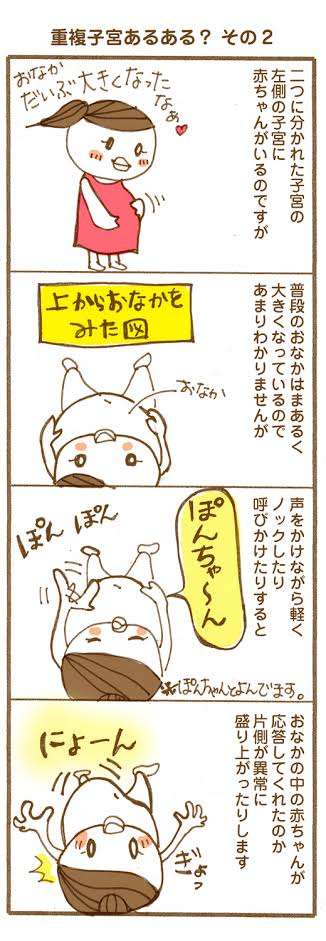 重複子宮あるある? その2
二つに分かれた子宮の
左側の子宮に
赤ちゃんがいるのですが
おなか
だいぶ大きくなった
なぁ
普段のおなかはまあるく
大きくなっているので
あまりわかりませんが
上からおなかを
みた図
おなか
声をかけながら軽く
ノックしたり
呼びかけたりすると
ぽんちゃ〜ん
ぽん ぽん
※ぽんちゃんとよんでます。
おなかの中の赤ちゃんが
応答してくれたのか
片側が異常に
盛り上がったりします
にょーん
ぎょっ